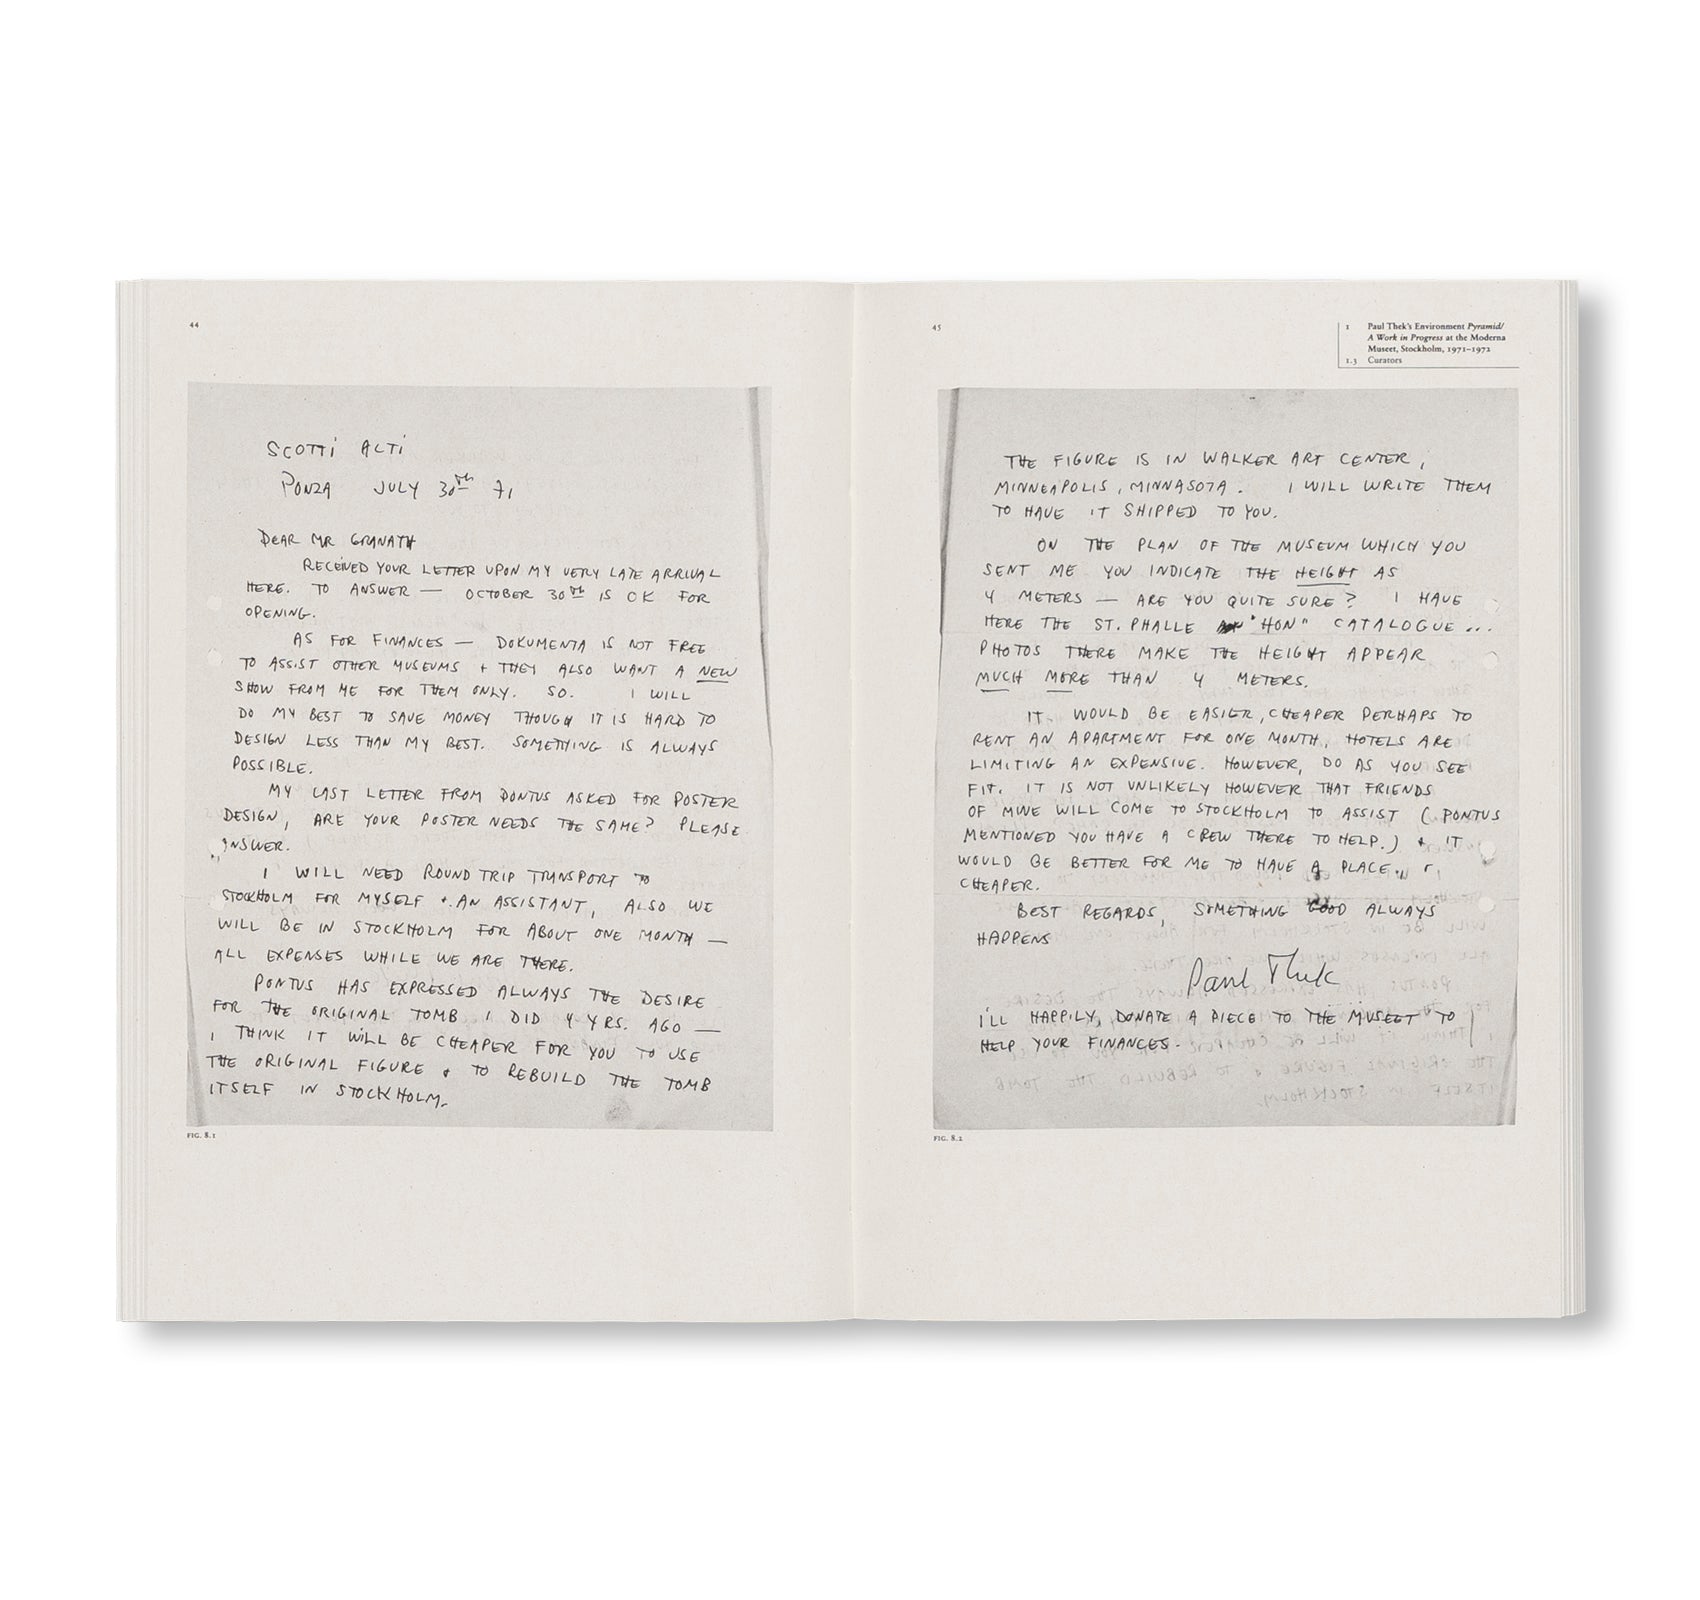 44
SCOTTI ALTI
PONZA JULY 30TH 71
DEAR MR GRANATH
RECEIVED YOUR LETTER UPON MY VERY LATE ARRIVAL
HERE. TO ANSWER — OCTOBER 30TH IS OK FOR
OPENING.
AS FOR FINANCES — DOKUMENTA IS NOT FREE
TO ASSIST OTHER MUSEUMS + THEY ALSO WANT A NEW
SHOW FROM ME FOR THEM ONLY. SO. I WILL
DO MY BEST TO SAVE MONEY THOUGH IT IS HARD TO
DESIGN LESS THAN MY BEST. SOMETHING IS ALWAYS
POSSIBLE.
MY LAST LETTER FROM PONTUS ASKED FOR POSTER
DESIGN, ARE YOUR POSTER NEEDS THE SAME? PLEASE
ANSWER.
I WILL NEED ROUND TRIP TRANSPORT TO
STOCKHOLM FOR MYSELF + AN ASSISTANT, ALSO WE
WILL BE IN STOCKHOLM FOR ABOUT ONE MONTH —
ALL EXPENSES WHILE WE ARE THERE.
PONTUS HAS EXPRESSED ALWAYS THE DESIRE
FOR THE ORIGINAL TOMB I DID 4 YRS. AGO —
I THINK IT WILL BE CHEAPER FOR YOU TO USE
THE ORIGINAL FIGURE + TO REBUILD THE TOMB
ITSELF IN STOCKHOLM.
FIG. 8.1
45
1 Paul Thek's Environment Pyramid/
A Work in Progress at the Moderna
Museet, Stockholm, 1971–1972
1.3 Curators
THE FIGURE IS IN WALKER ART CENTER,
MINNEAPOLIS, MINNASOTA. I WILL WRITE THEM
TO HAVE IT SHIPPED TO YOU.
ON THE PLAN OF THE MUSEUM WHICH YOU
SENT ME YOU INDICATE THE HEIGHT AS
4 METERS — ARE YOU QUITE SURE? I HAVE
HERE THE ST. PHALLE "HON" CATALOGUE...
PHOTOS THERE MAKE THE HEIGHT APPEAR
MUCH MORE THAN 4 METERS.
IT WOULD BE EASIER, CHEAPER PERHAPS TO
RENT AN APARTMENT FOR ONE MONTH, HOTELS ARE
LIMITING AN EXPENSIVE. HOWEVER, DO AS YOU SEE
FIT. IT IS NOT UNLIKELY HOWEVER THAT FRIENDS
OF MINE WILL COME TO STOCKHOLM TO ASSIST (PONTUS
MENTIONED YOU HAVE A CREW THERE TO HELP.) + IT
WOULD BE BETTER FOR ME TO HAVE A PLACE..
CHEAPER.
BEST REGARDS, SOMETHING GOOD ALWAYS
HAPPENS
Paul Thek
I'LL HAPPILY, DONATE A PIECE TO THE MUSEET TO
HELP YOUR FINANCES.
FIG. 8.2